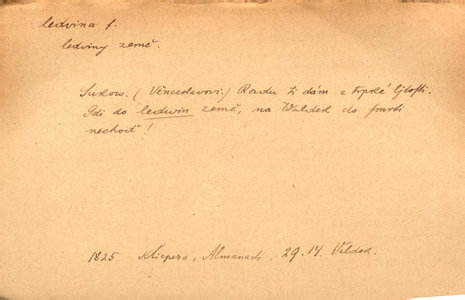 ledvina f.
ledviny země.
Sukow. (Věnceslavovi.) Radu ti dám z trpké ljtosti.
Gdi do ledwin země, na Waldek do smrti
nechoď!
1825. Klicpera, Almanach, 29.14. Valdek.